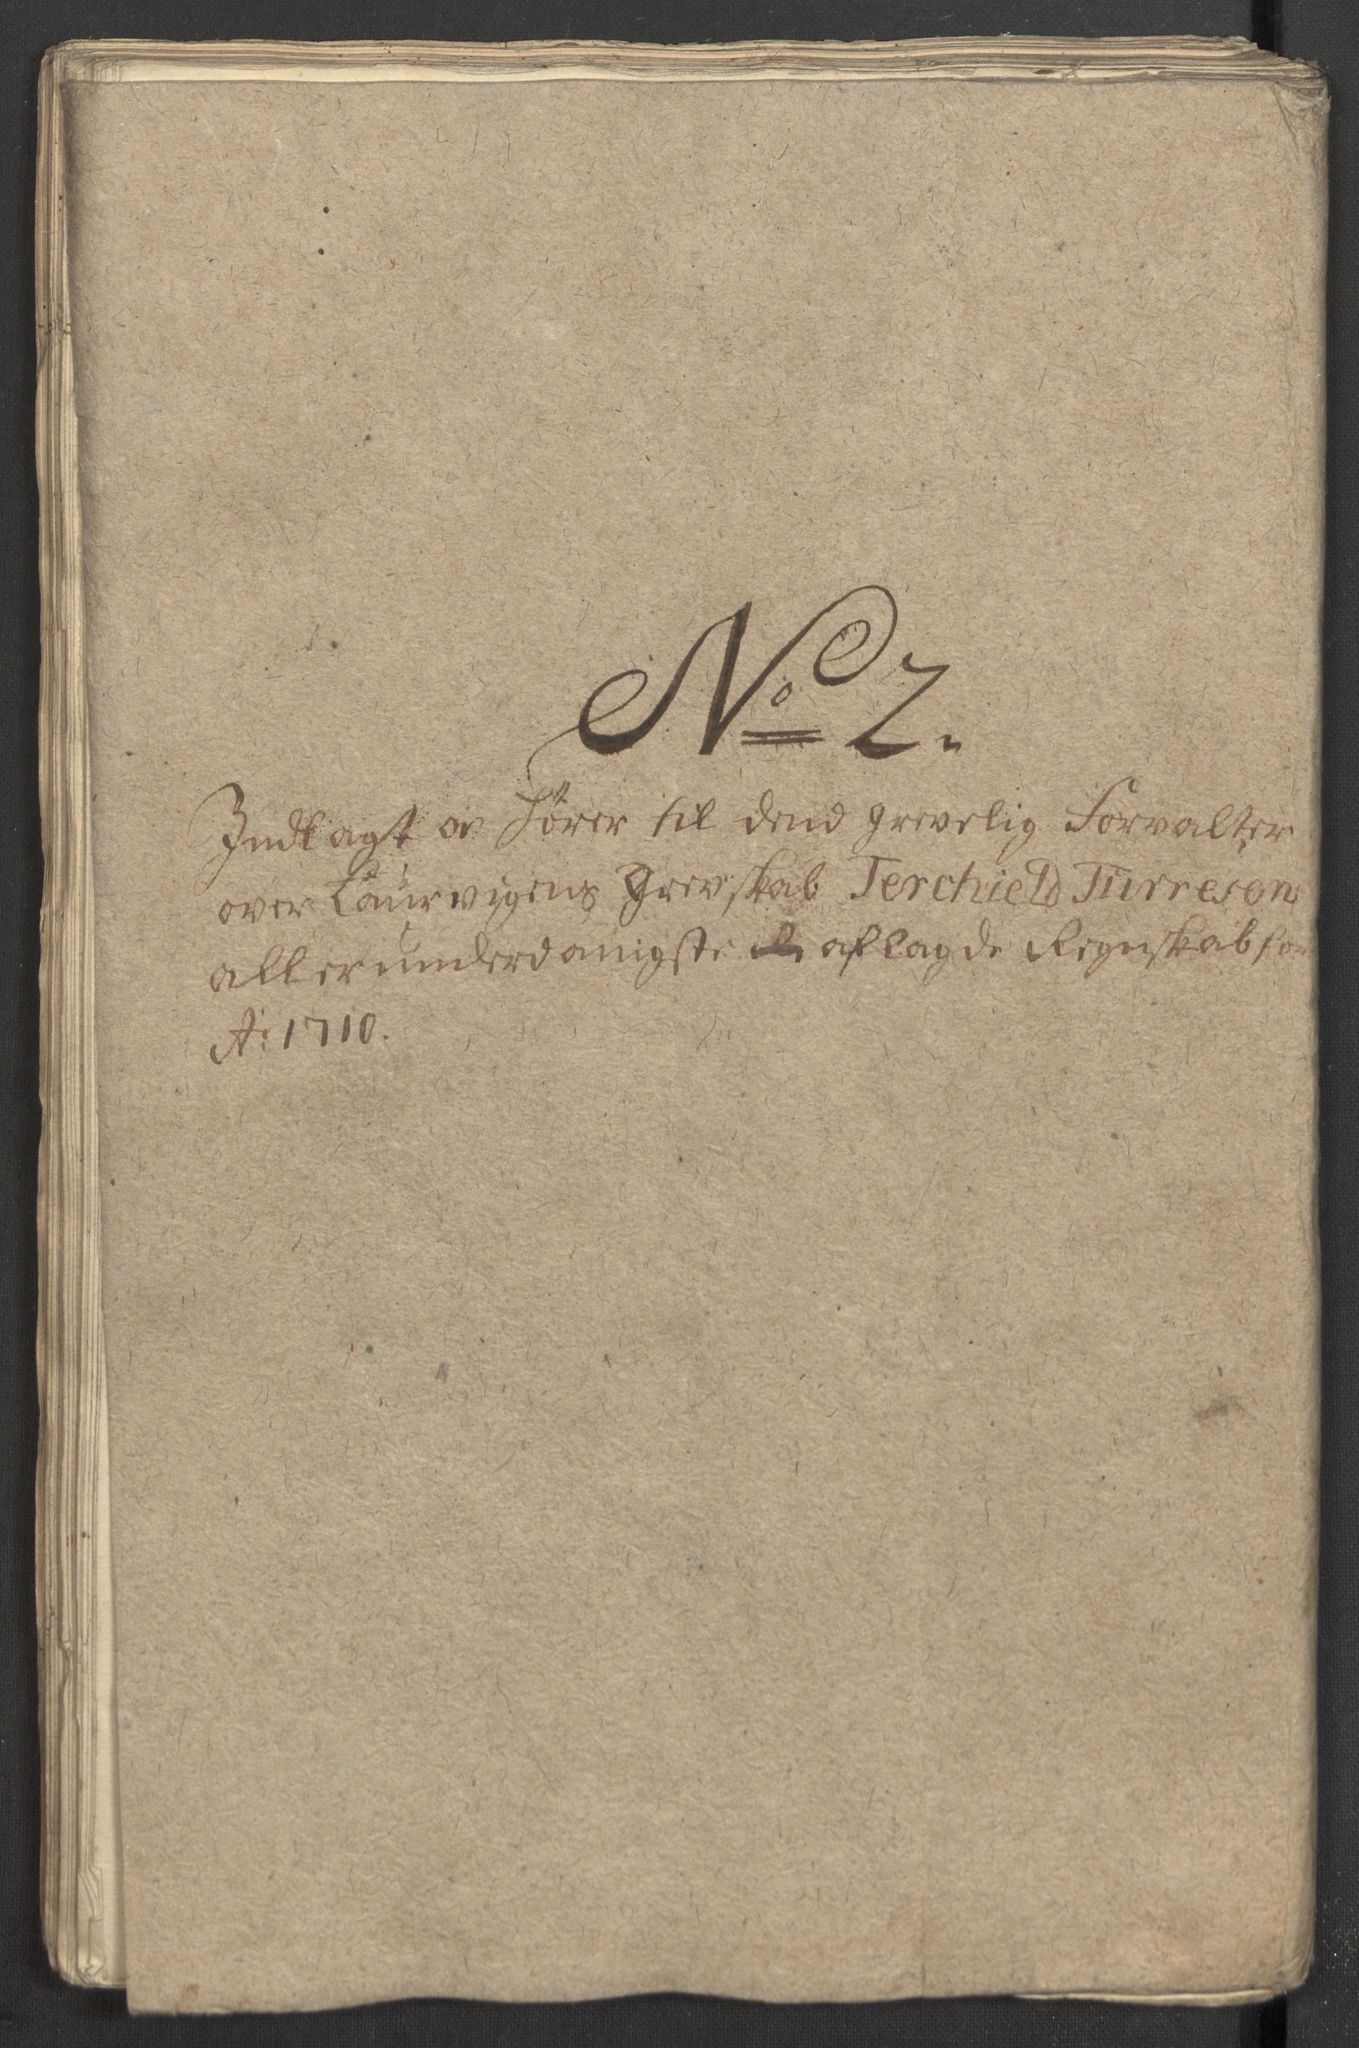 No 2.
Indlagt og hörer til dend grevelig Forvalter
over Laurvigens Grevskab Terchield Turreson
allerunderdanigste aflagde Regnskab for
A: 1710.